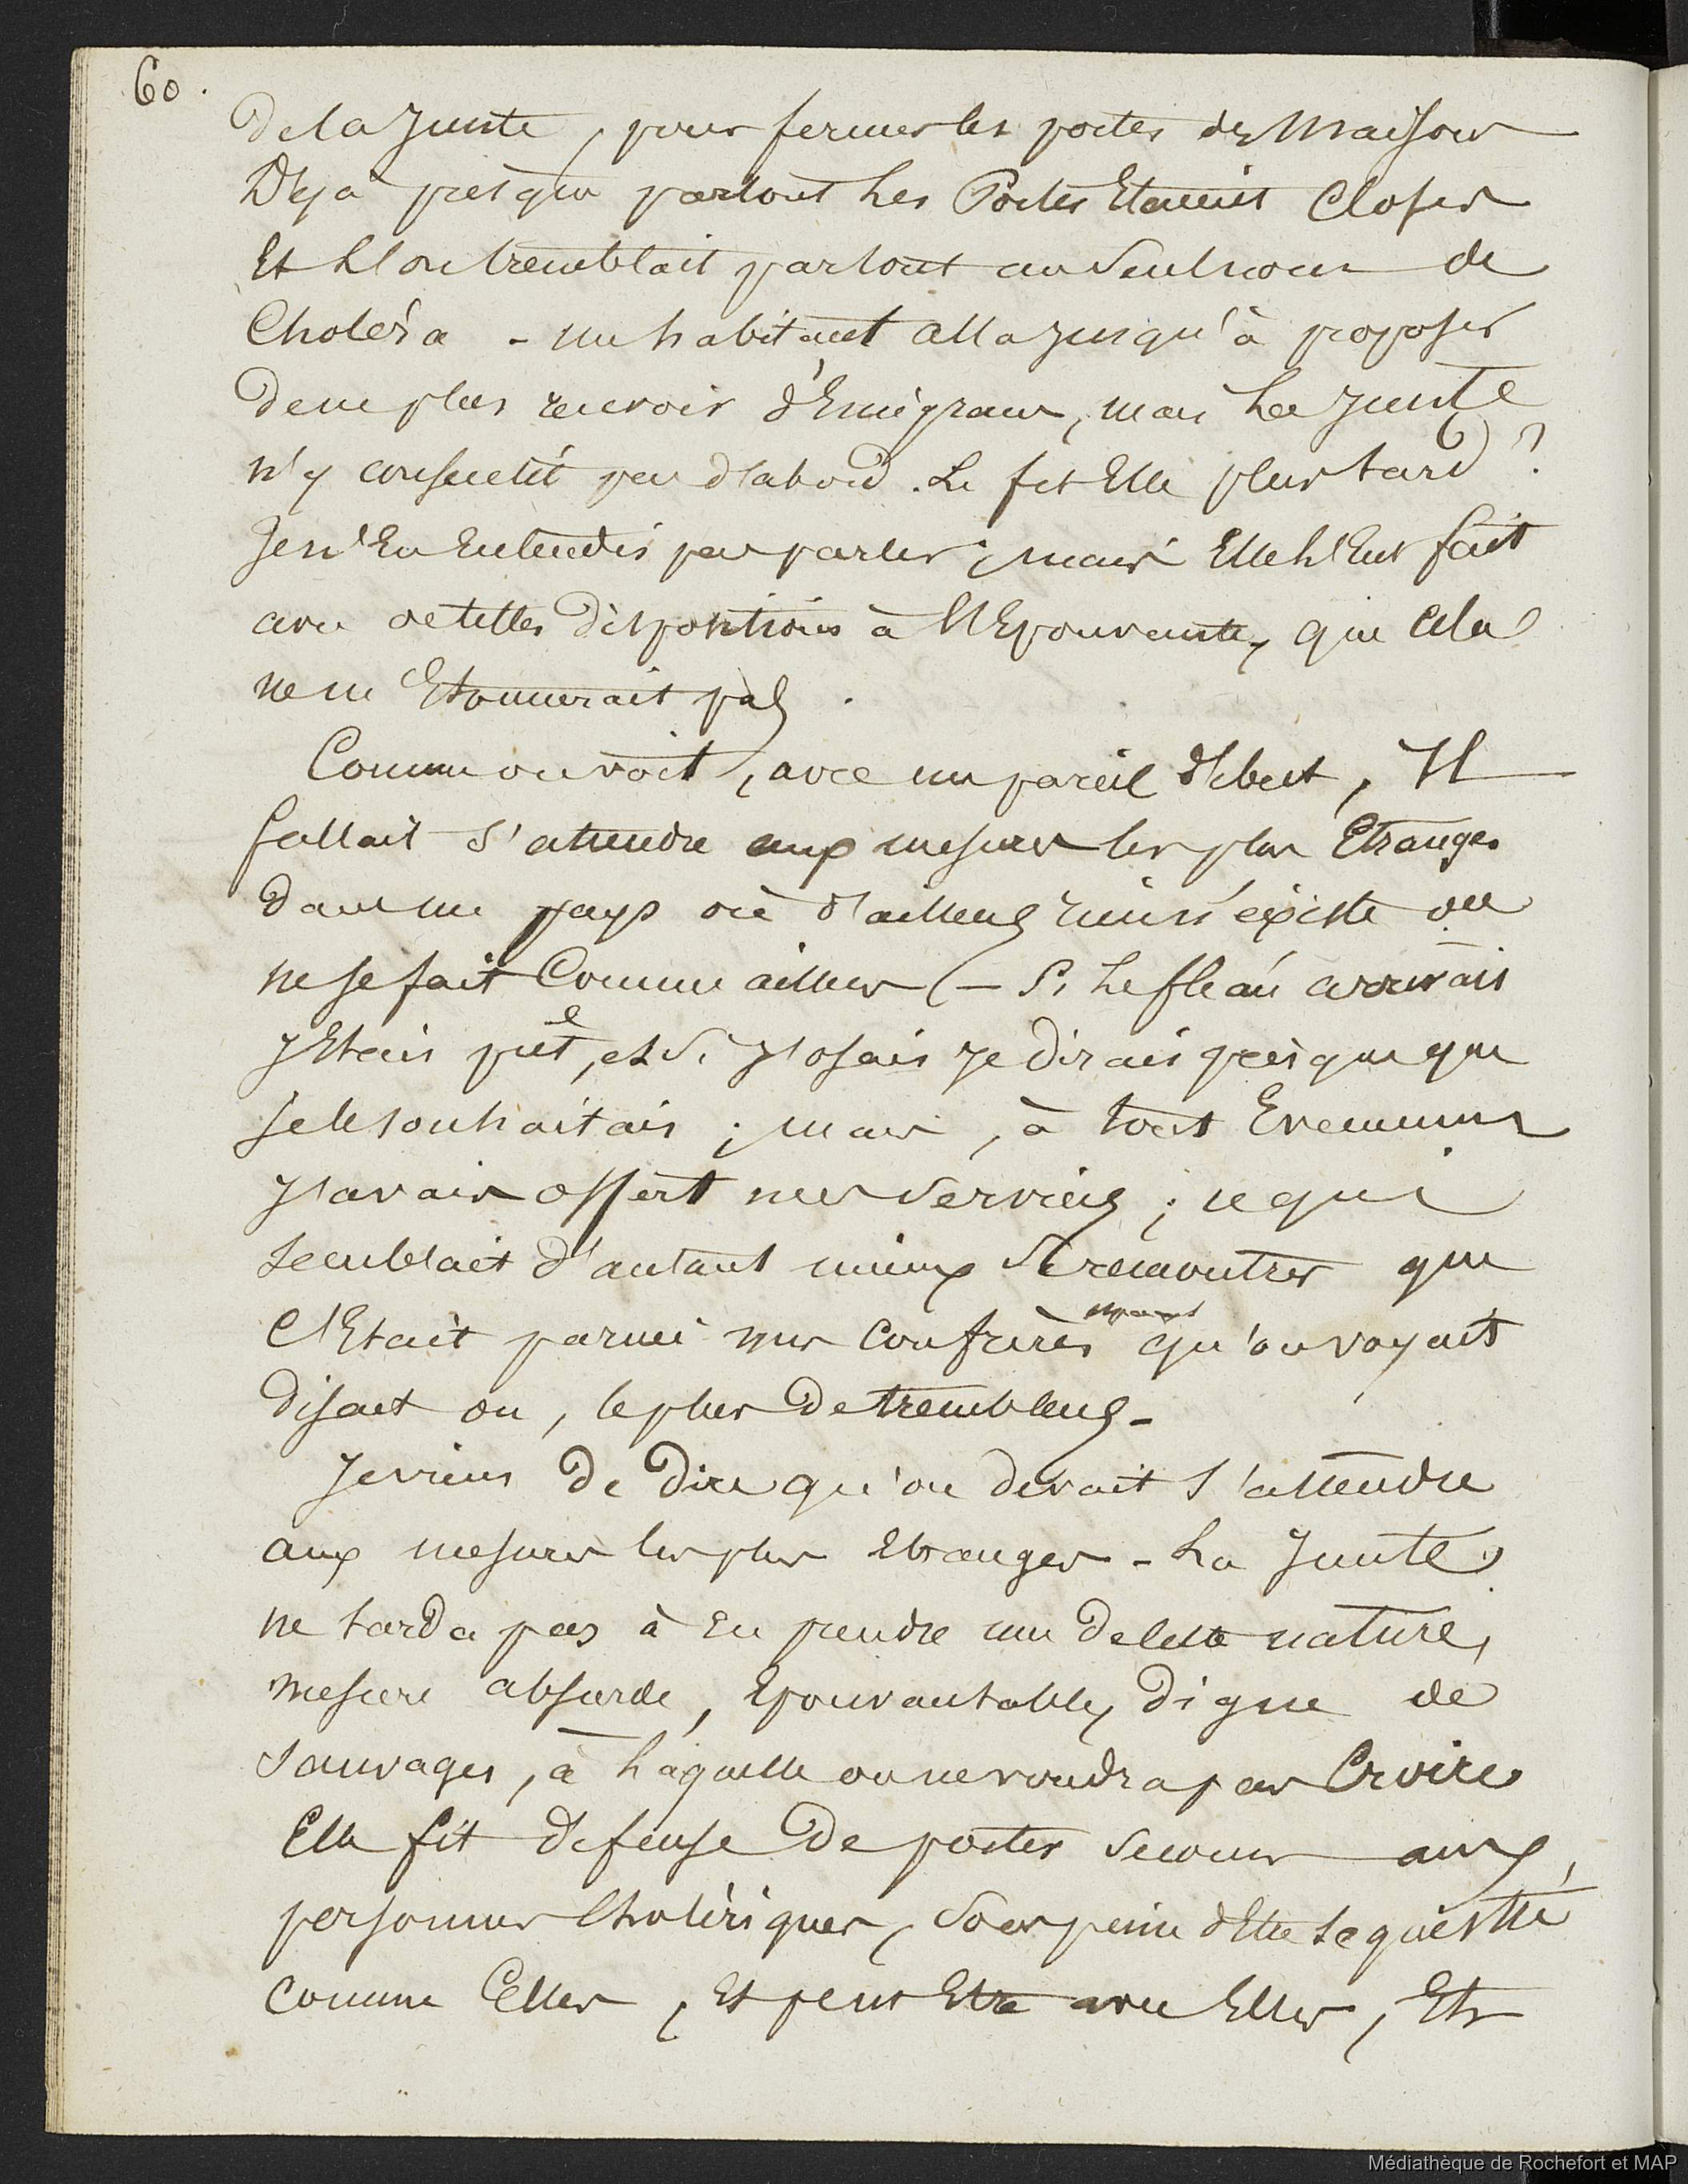 60.
de la Junte, pour fermer les portes des Maisons
Deja presque partout les Portes Etaient Closes
Et l'on tremblait partout au seul nom de
Cholèra - un habitant alla jusqu'à proposer
de ne plus recevoir d'Emigrans, mais La Junte
n'y consentit pas d'abord. Le fit Elle plus tard ?
Je n'En Entendis pas parler ; mais Elle l'Eut fait
avec de telles dispositions à l'Epouvante, que cela
ne m'Etonnerait pas.
Comme on voit, avec un pareil début, Il
fallait s'attendre aux mesures les plus Etranges
dans un pays où d'ailleurs rien n'éxiste ou
ne se fait Comme ailleurs (- Si Le fléau arrivait
J'Etais prêt, et si J'osais Je dirais presque que
Je le souhaitais ; mais, à tout Evenement
J'avais offert mes services ; ce qui
semblait d'autant mieux se rencontrer que
C'Etait parmi mes Confrères qu'on voyait
disait on, le plus de trembleurs -
Je viens de dire qu'on devait s'attendre
aux mesures les plus Etranges - La Junte
ne tarda pas à En prendre une de cette nature,
mesure absurde, Epouvantable, digne de
sauvages, à laquelle on ne voudra pas Croire
Elle fit défense de porter secours aux
personnes Cholériques, sous peine d'Etre séquestré
comme Elles, Et peut Etre avec Elles, Et
Médiathèque de Rochefort et MAP